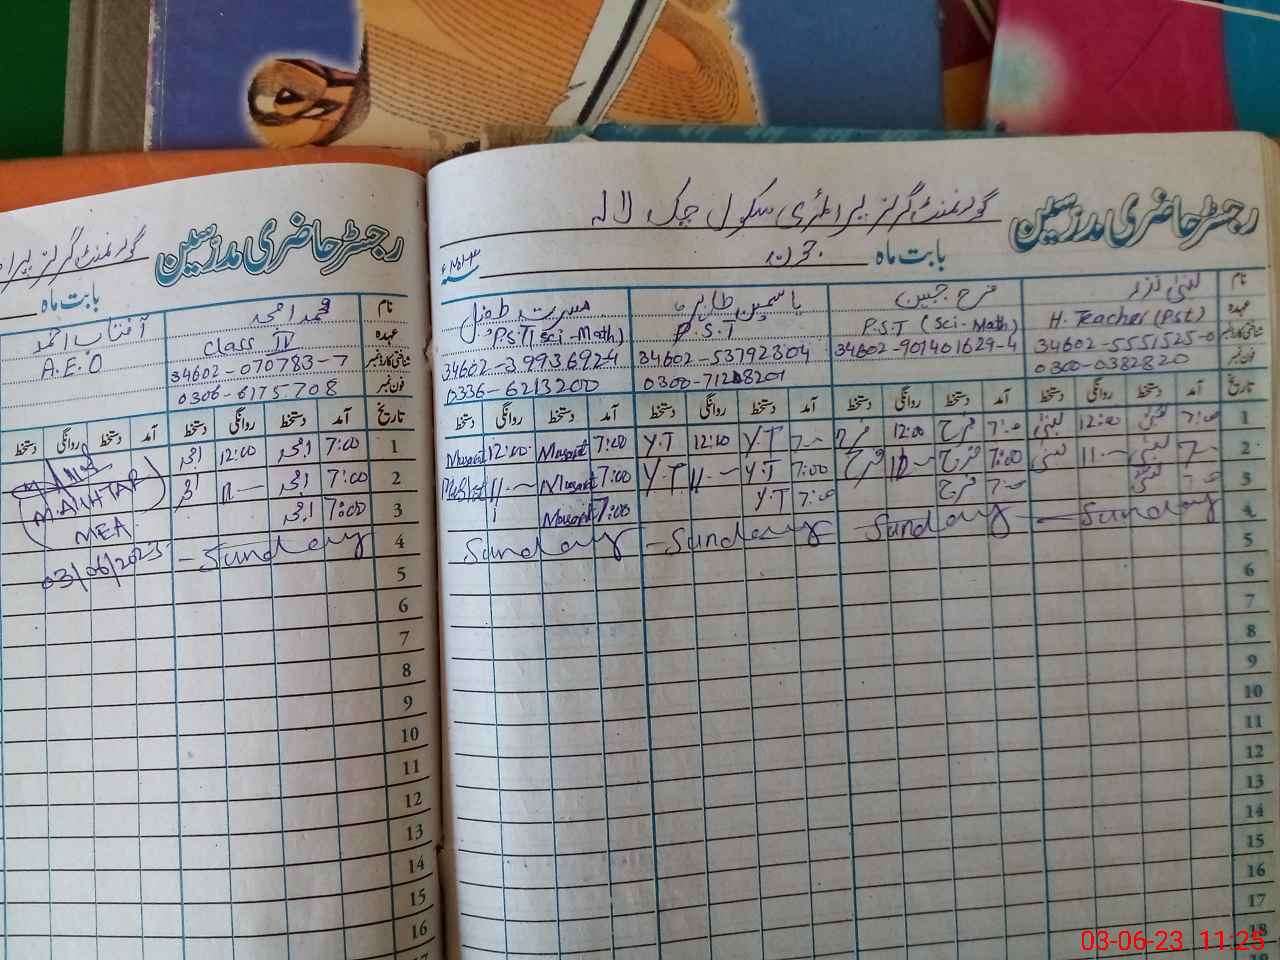 رجسٹر حاضری مدرسین
گورنمنٹ گرلز پرائمری سکول چک
بابت ماہ جون
نام لبنیٰ نذر فرح جبین یاسمین طاہرہ مسرت طفیل
عہدہ H. Teacher (Pst) P.S.T (Sci-Math) P.S.T P.S.T (Sci-Math)
شناختی کارڈ نمبر 34602-5551525-0 34602-901401629-4 34602-53792804 34602-39936924
فون نمبر 0300-0382820 0300-71208201 0336-6213200
تاریخ آمد دستخط روانگی دستخط آمد دستخط روانگی دستخط آمد دستخط روانگی دستخط آمد دستخط روانگی دستخط
1 7:00 لبنیٰ 12:00 لبنیٰ 7:00 فرح 12:00 فرح 7:00 Y.T 12:00 Y.T 7:00 Musarat 12:00 Musarat
2 7:00 لبنیٰ 11:00 لبنیٰ 7:00 فرح 11:00 فرح 7:00 Y.T 11:00 Y.T 7:00 Musarat 11:00
3 7:00 لبنیٰ 7:00 فرح 7:00 Y.T 7:00 Musarat
4 Sunday Sunday Sunday Sunday
5
6
7
8
9
10
11
12
13
14
15
16
17
18
رجسٹر حاضری مدرسین
گورنمنٹ گرلز
بابت ماہ
نام محمد امجد آفتاب احمد
عہدہ Class IV A.E.O
شناختی کارڈ نمبر 34602-070783-7
فون نمبر 0306-6175708
تاریخ آمد دستخط روانگی دستخط آمد دستخط روانگی دستخط
1 7:00 امجد 12:00 امجد
2 7:00 امجد 11:00 امجد M.AKHTAR
3 7:00 امجد MEA
4 Sunday 03/06/2023
5
6
7
8
9
10
11
12
13
14
15
16
03-06-23 11:25